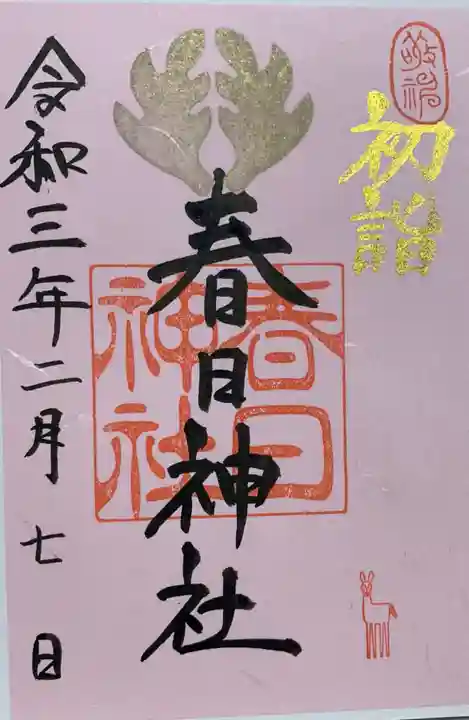 敬神
初詣
春日神社
春日
神社
令和三年二月七日